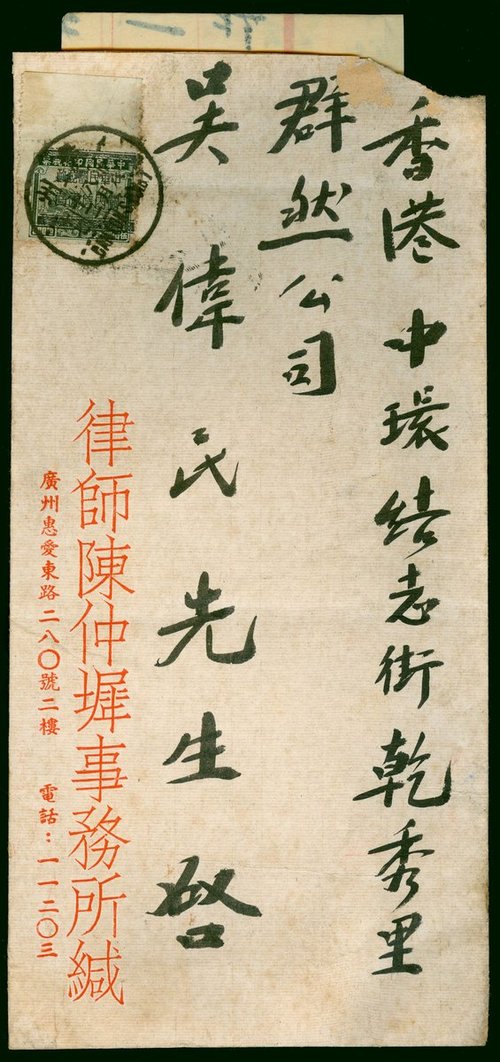 香港中環結志街乾秀里
群然公司
吳偉民先生啓
律師陳仲墀事務所緘
廣州惠愛東路二八〇號二樓 電話：一一二〇三